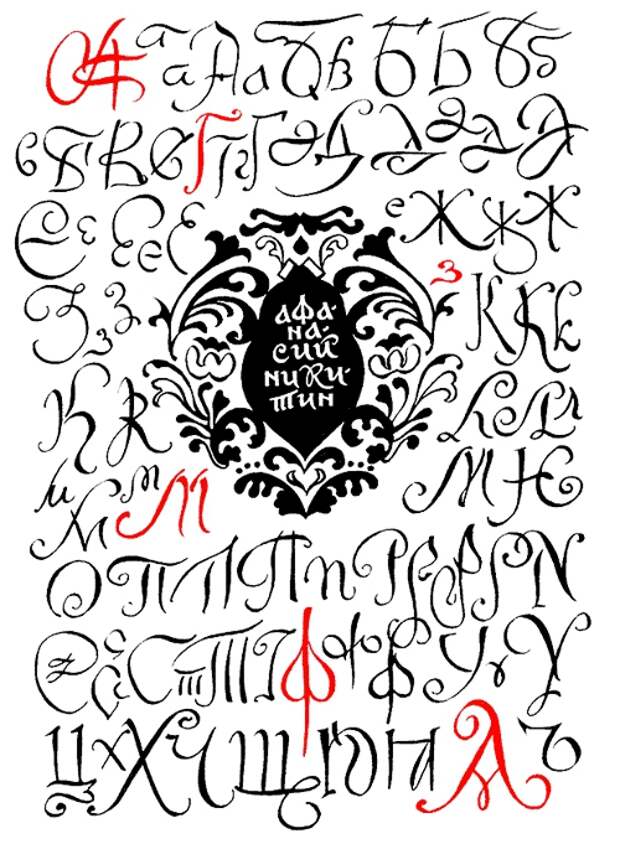 А а а А а В в Б Б Б б
в Б В Г Г Г Д Д д Д Д
Е е Е е Е е Ж ж Ж
З з з З К К к
АФА-
НА-
СИЙ
НИКИ-
ТИН
К К Л Л л
и м М М М Ю
О П П П п Р Р Р N
С С т Т Ф ф Ф У у У
Ц х Х Ч Щ Ю Н А Ъ